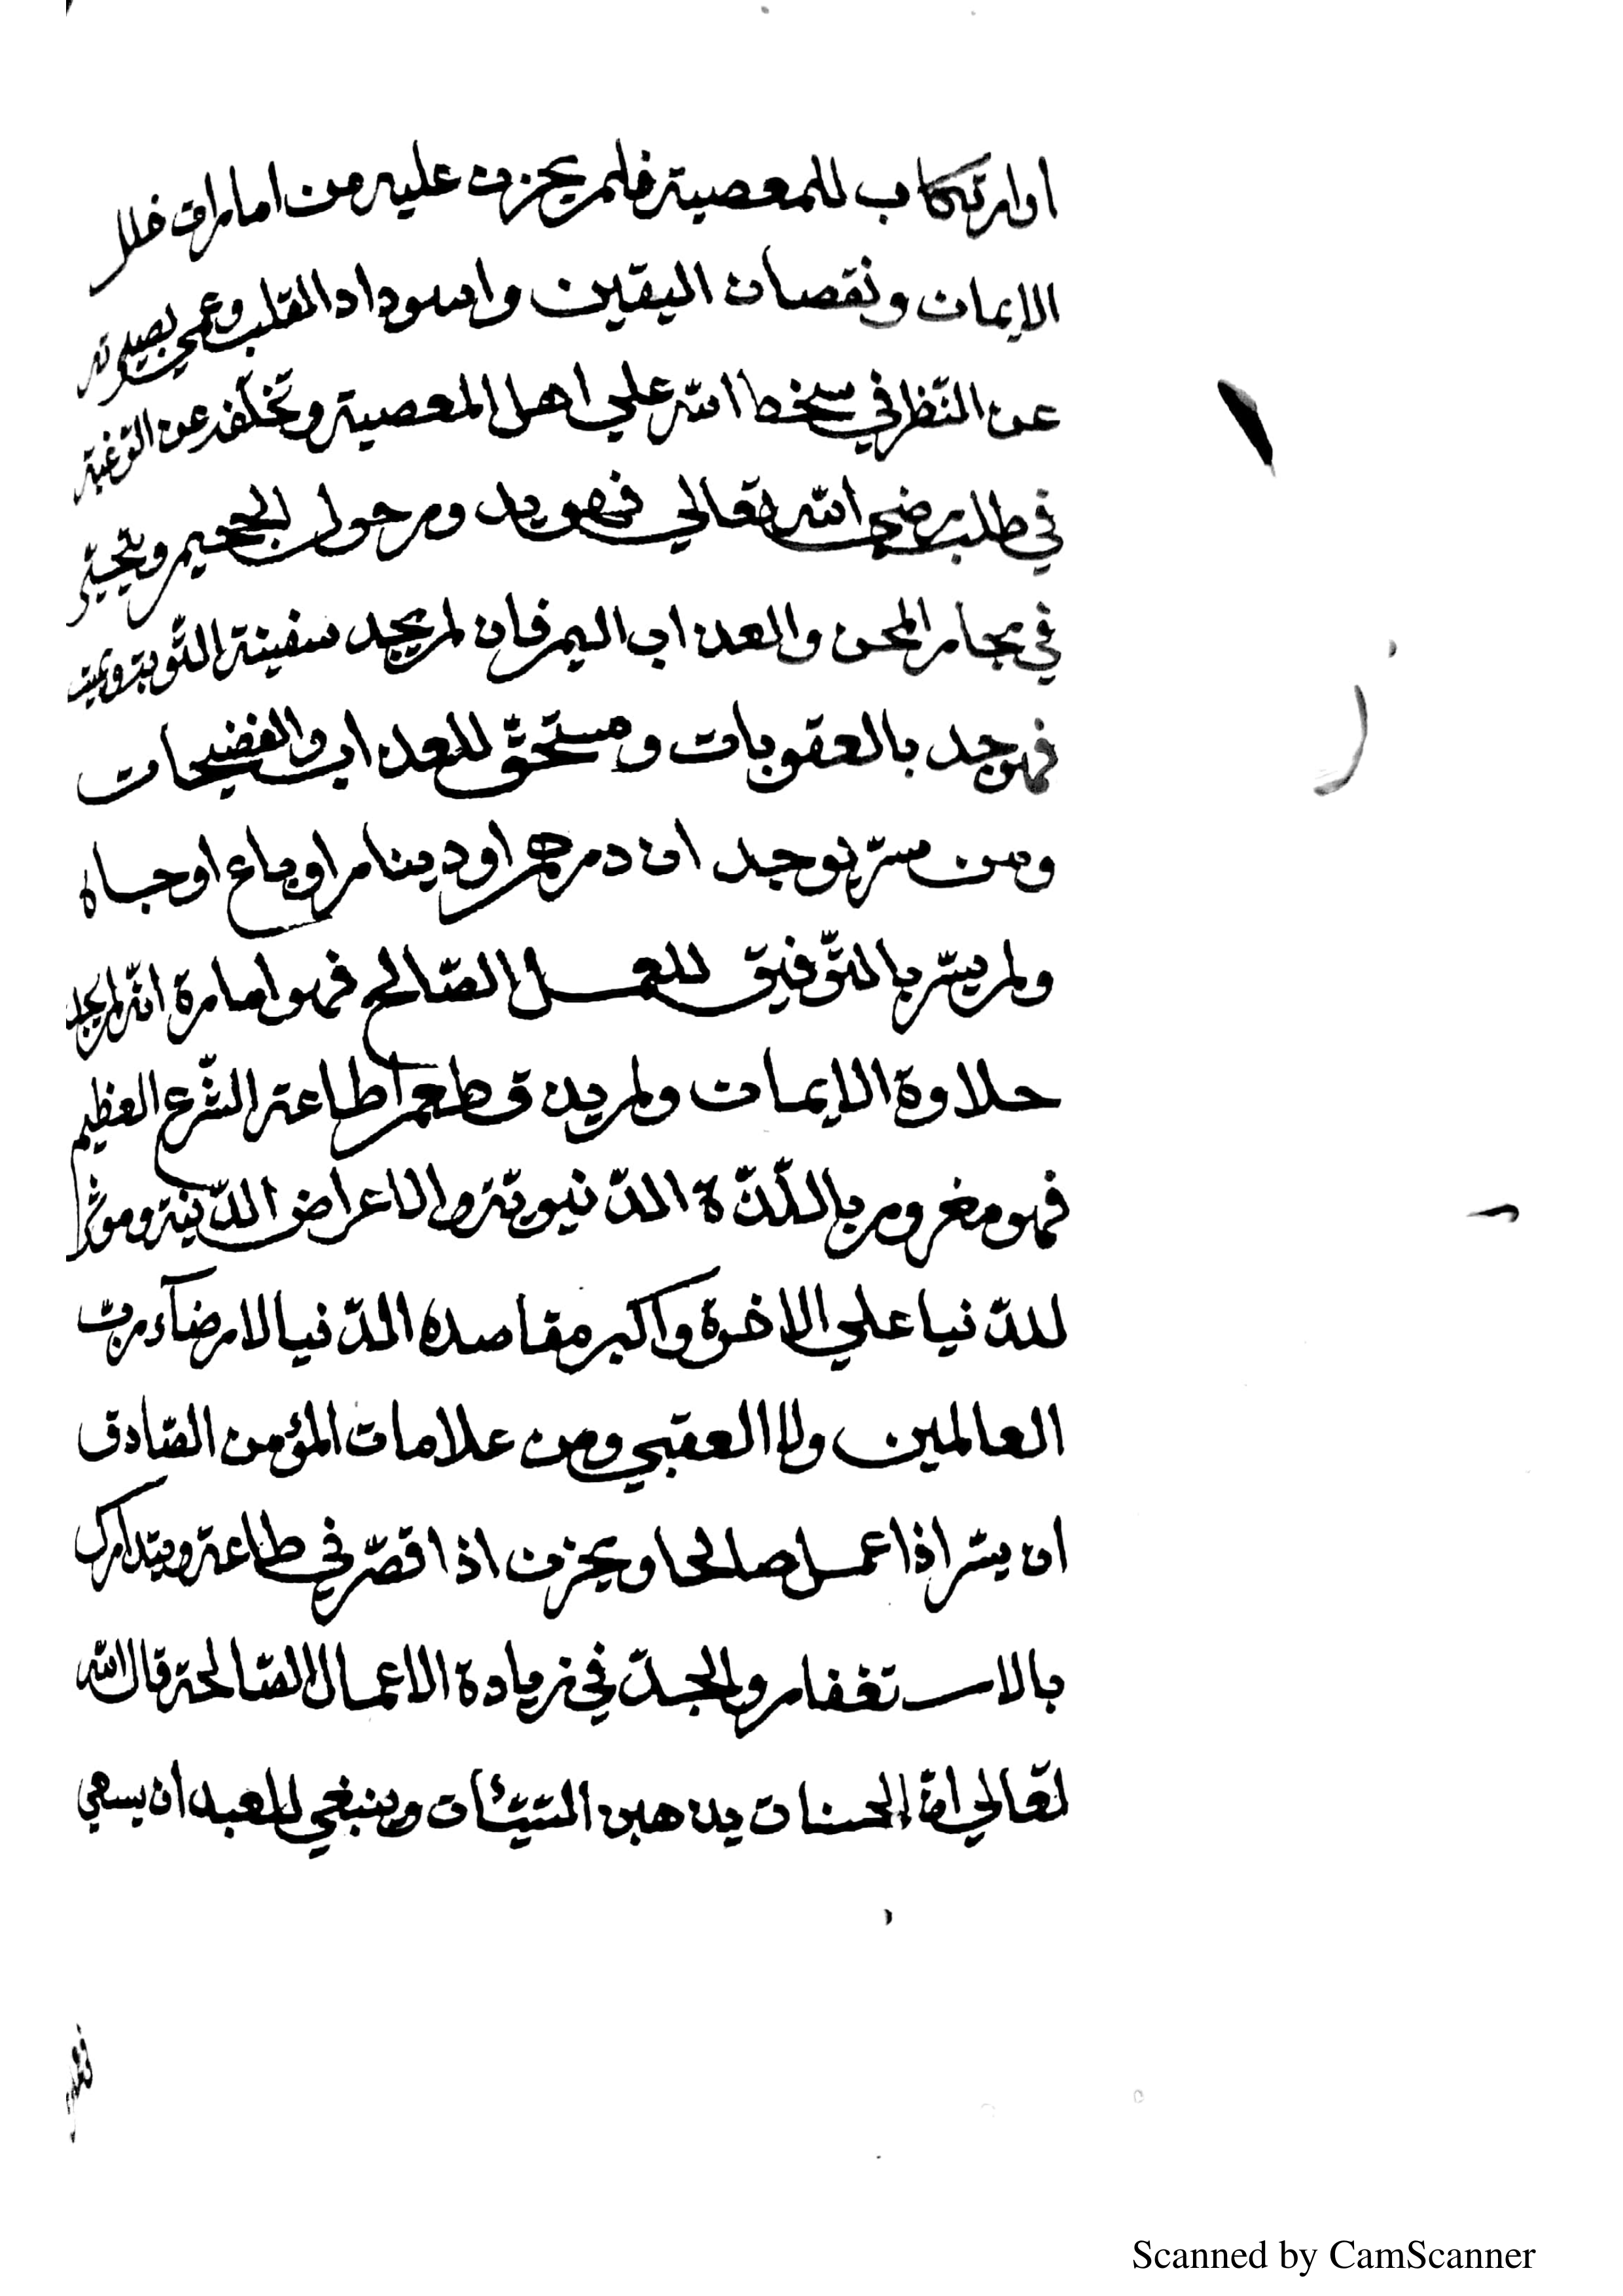 او ارتكاب للمعصية فلم يحزن عليه من امارات خلل
الايمان ونقصان اليقين واسوداد القلب وعمي بصيرته
عن النّظر في سخط اللّه علي اهل المعصية وتخلّفه عن الرّغبة
في طلب رضي اللّه تعالي فهو يدور حول الجحيم ويحيّر
في بحار المحن والعذاب اليم فان لم يجد سفينة التّوبة ويمت
فهو جد بالعقوبات ومستحقّ للعذاب والفضيحات
ومن سرّ بوجدان درهم او دينار او باع او جاه
ولم يسرّ بالتّوفيق للعمل الصّالح فهو امارة انّه لم يجد
حلاوة الايمان ولم يذق طعم اطاعة الشّرع العظيم
فهو مغرور باللّذّة الدّنيويّة والاعراض الدّنيّة وموثرا
للدّنيا علي الاخرة واكبر مقاصده الدّنيا لا رضآء ربّ
العالمين ولا العقبي ومن علامات المؤمن الصّادق
ان يسّر اذا عمل صالحا ويحزن اذا قصّر في طاعة ويتدارك
بالاستغفار والجدّ في زيادة الاعمال الصّالحة قال اللّه
تعالي انّ الحسنات يذهبن السّيّئات وينبغي للعبد ان يسعي
Scanned by CamScanner